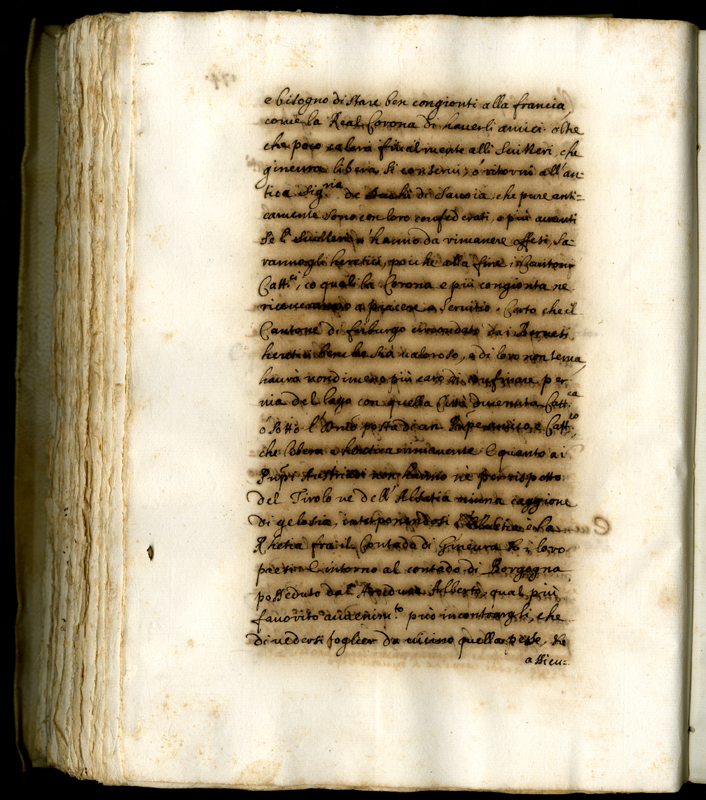 e bisogno di stare ben congionti alla francia
come la Real Corona di haverli amici oltre
che poco calerà finalmente alli Suitteri, che
gineura libera si conserui, ò ritorni all'an
tica Sig.ria de Duchi di Sauoia, che pure anti=
camente sono con loro confederati, e più auanti
se li Suitteri n'hanno da rimanere offesi, sa
ranno gli heretici, poiche alla fine i Cantoni
Catt.ci, co quali la Corona e più congionta ne
riceueranno a piacere e Seruitio. Certo che il
Cantone di friburgo circondato da i Bernesi
heretici benche sia ualoroso, e di loro non tema,
haurà nondimeno più caro di confinare per
uia del lago con quella Città diuenuta Catt.ca
ò sotto l'ombra posta di un Imperatrice, e Catt.co,
che libera e heretica rimanente. E quanto ai
Prñpi Austriaci non hanno ne per rispetto
del Tirolo ne dell'Alsatia niuna caggione
di gelosia, interponendosi l'Eluetia e la
Rhetia fra il Contado di Gineura e i loro
paesi. L'intorno al contado di Borgogna
posseduto dal Arciduca Alberto, qual più
favorito auuenim.to può incontrargli, che
di uedersi togliere da uicino quella peste, ne
assicu=